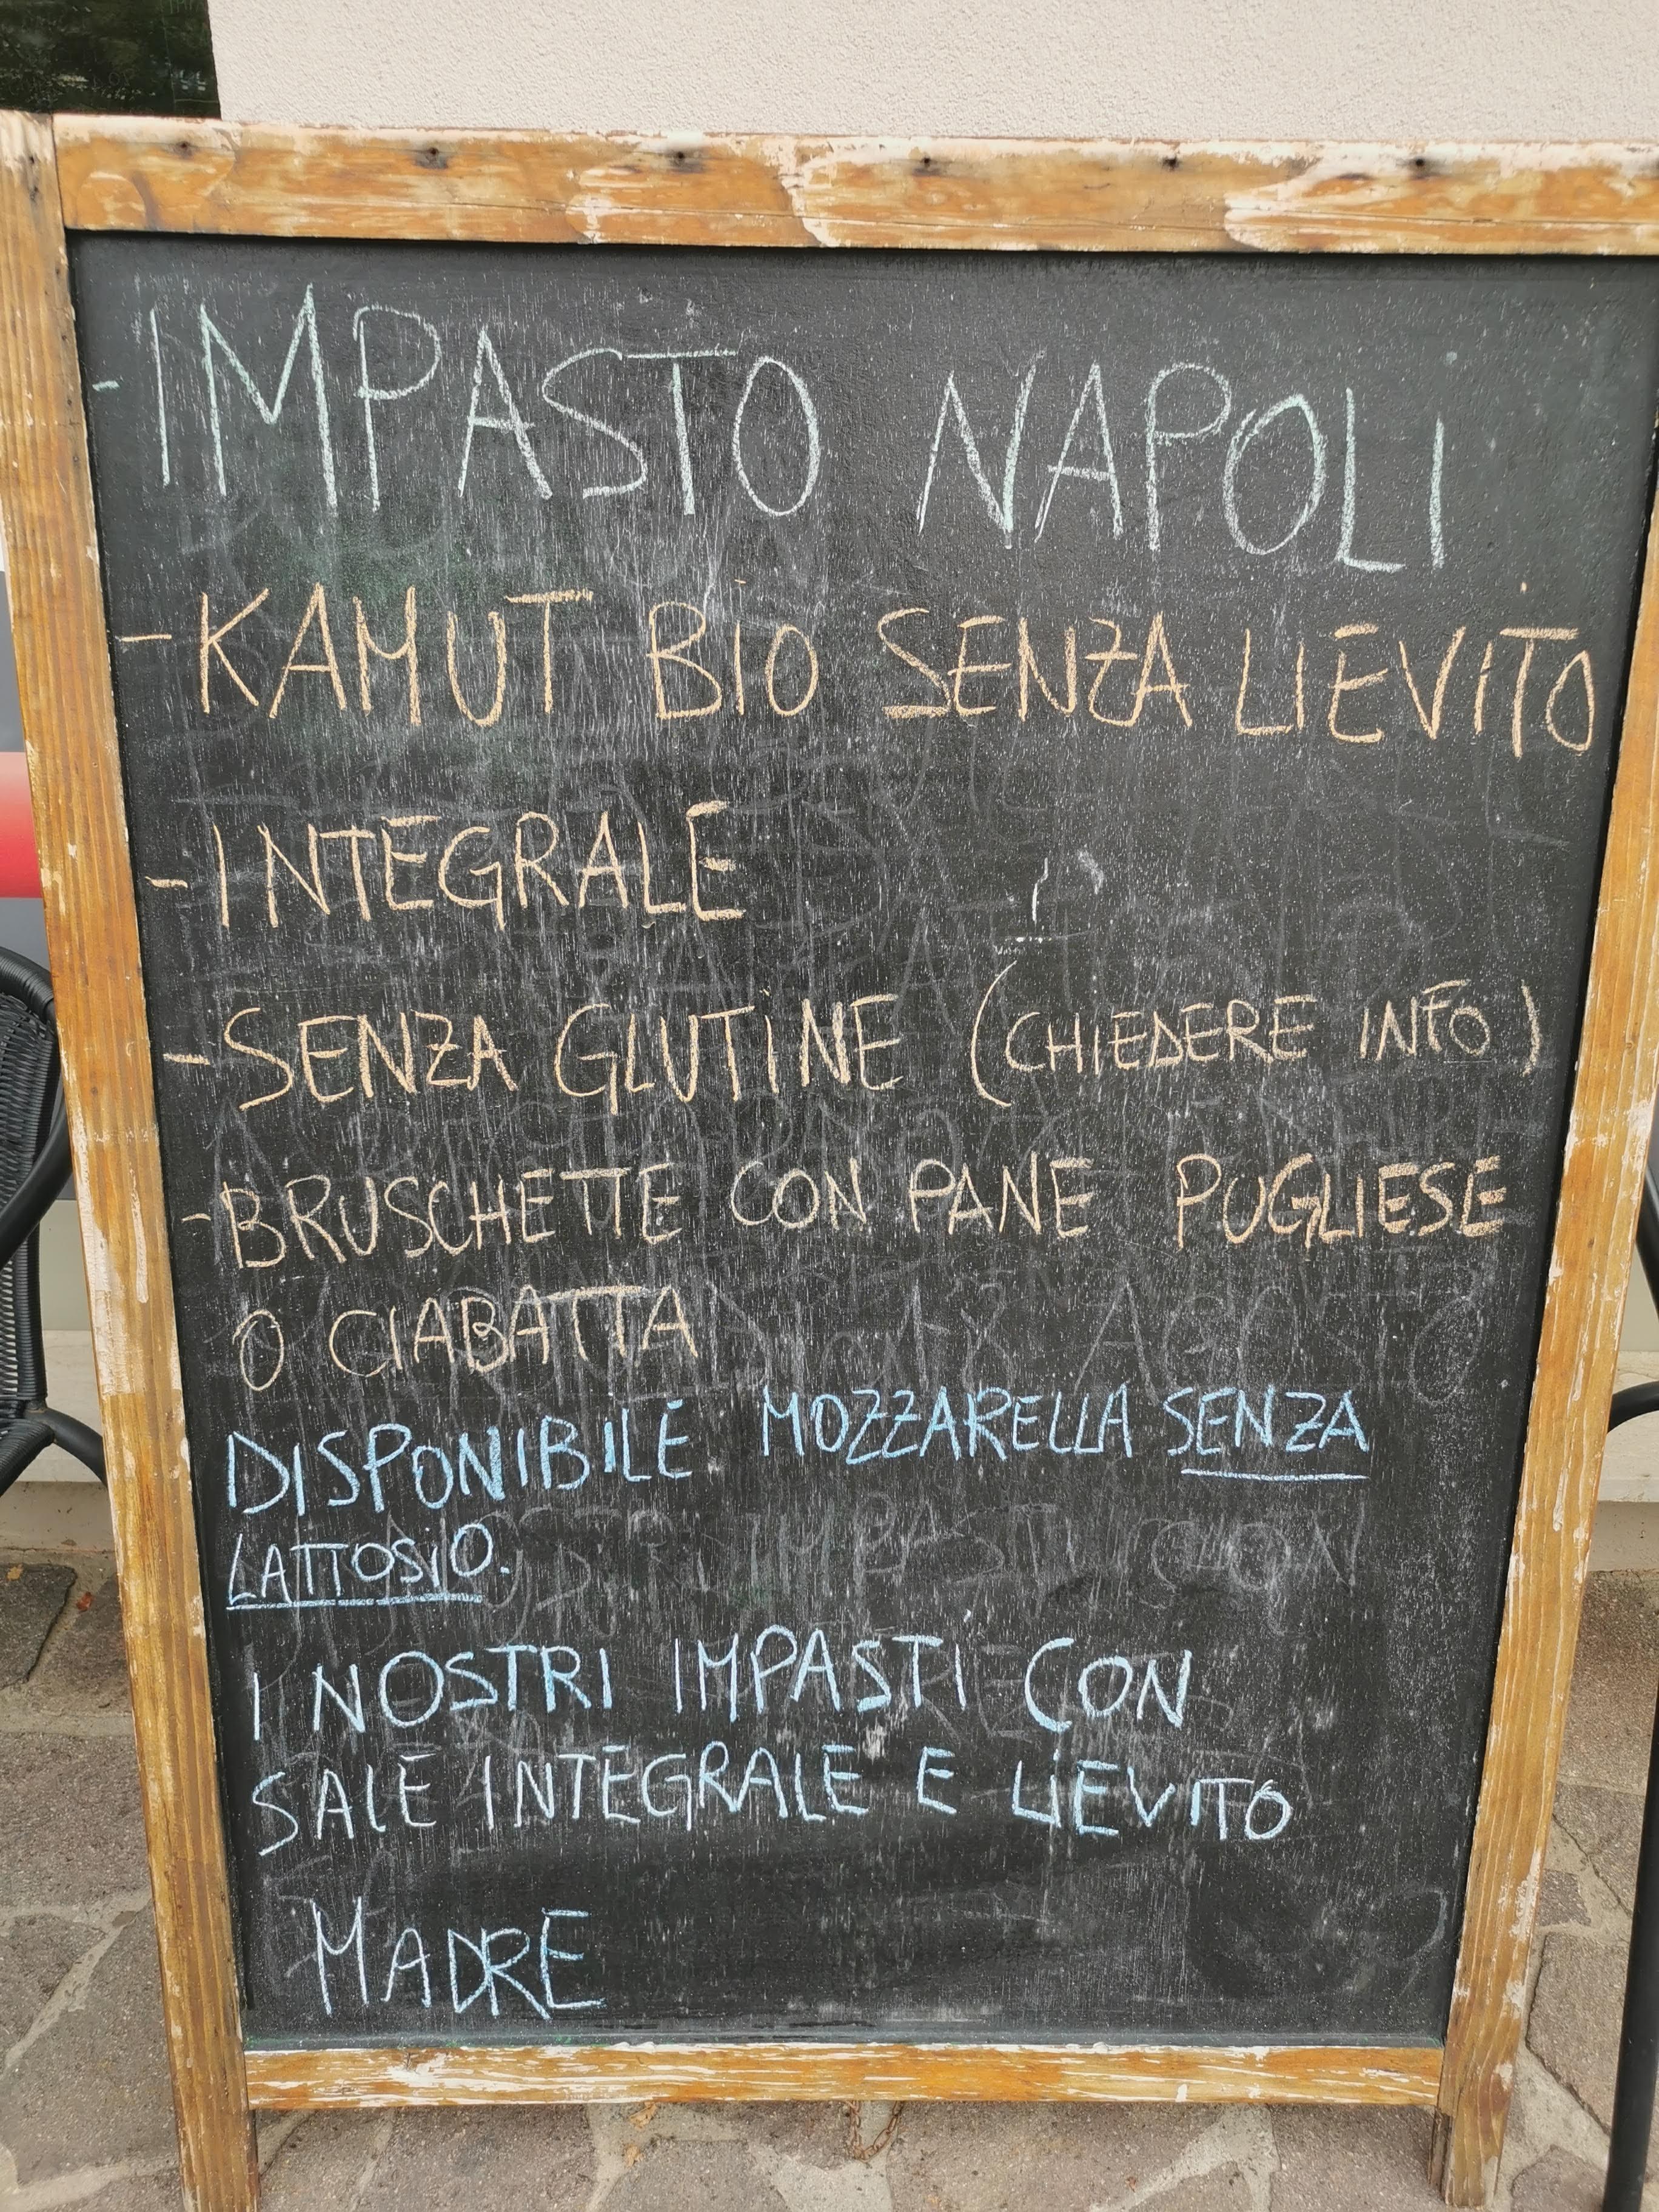 -IMPASTO NAPOLI
-KAMUT BIO SENZA LIEVITO
-INTEGRALE
-SENZA GLUTINE (CHIEDERE INFO)
-BRUSCHETTE CON PANE PUGLIESE
O CIABATTA
DISPONIBILE MOZZARELLA SENZA
LATTOSIO.
I NOSTRI IMPASTI CON
SALE INTEGRALE E LIEVITO
MADRE